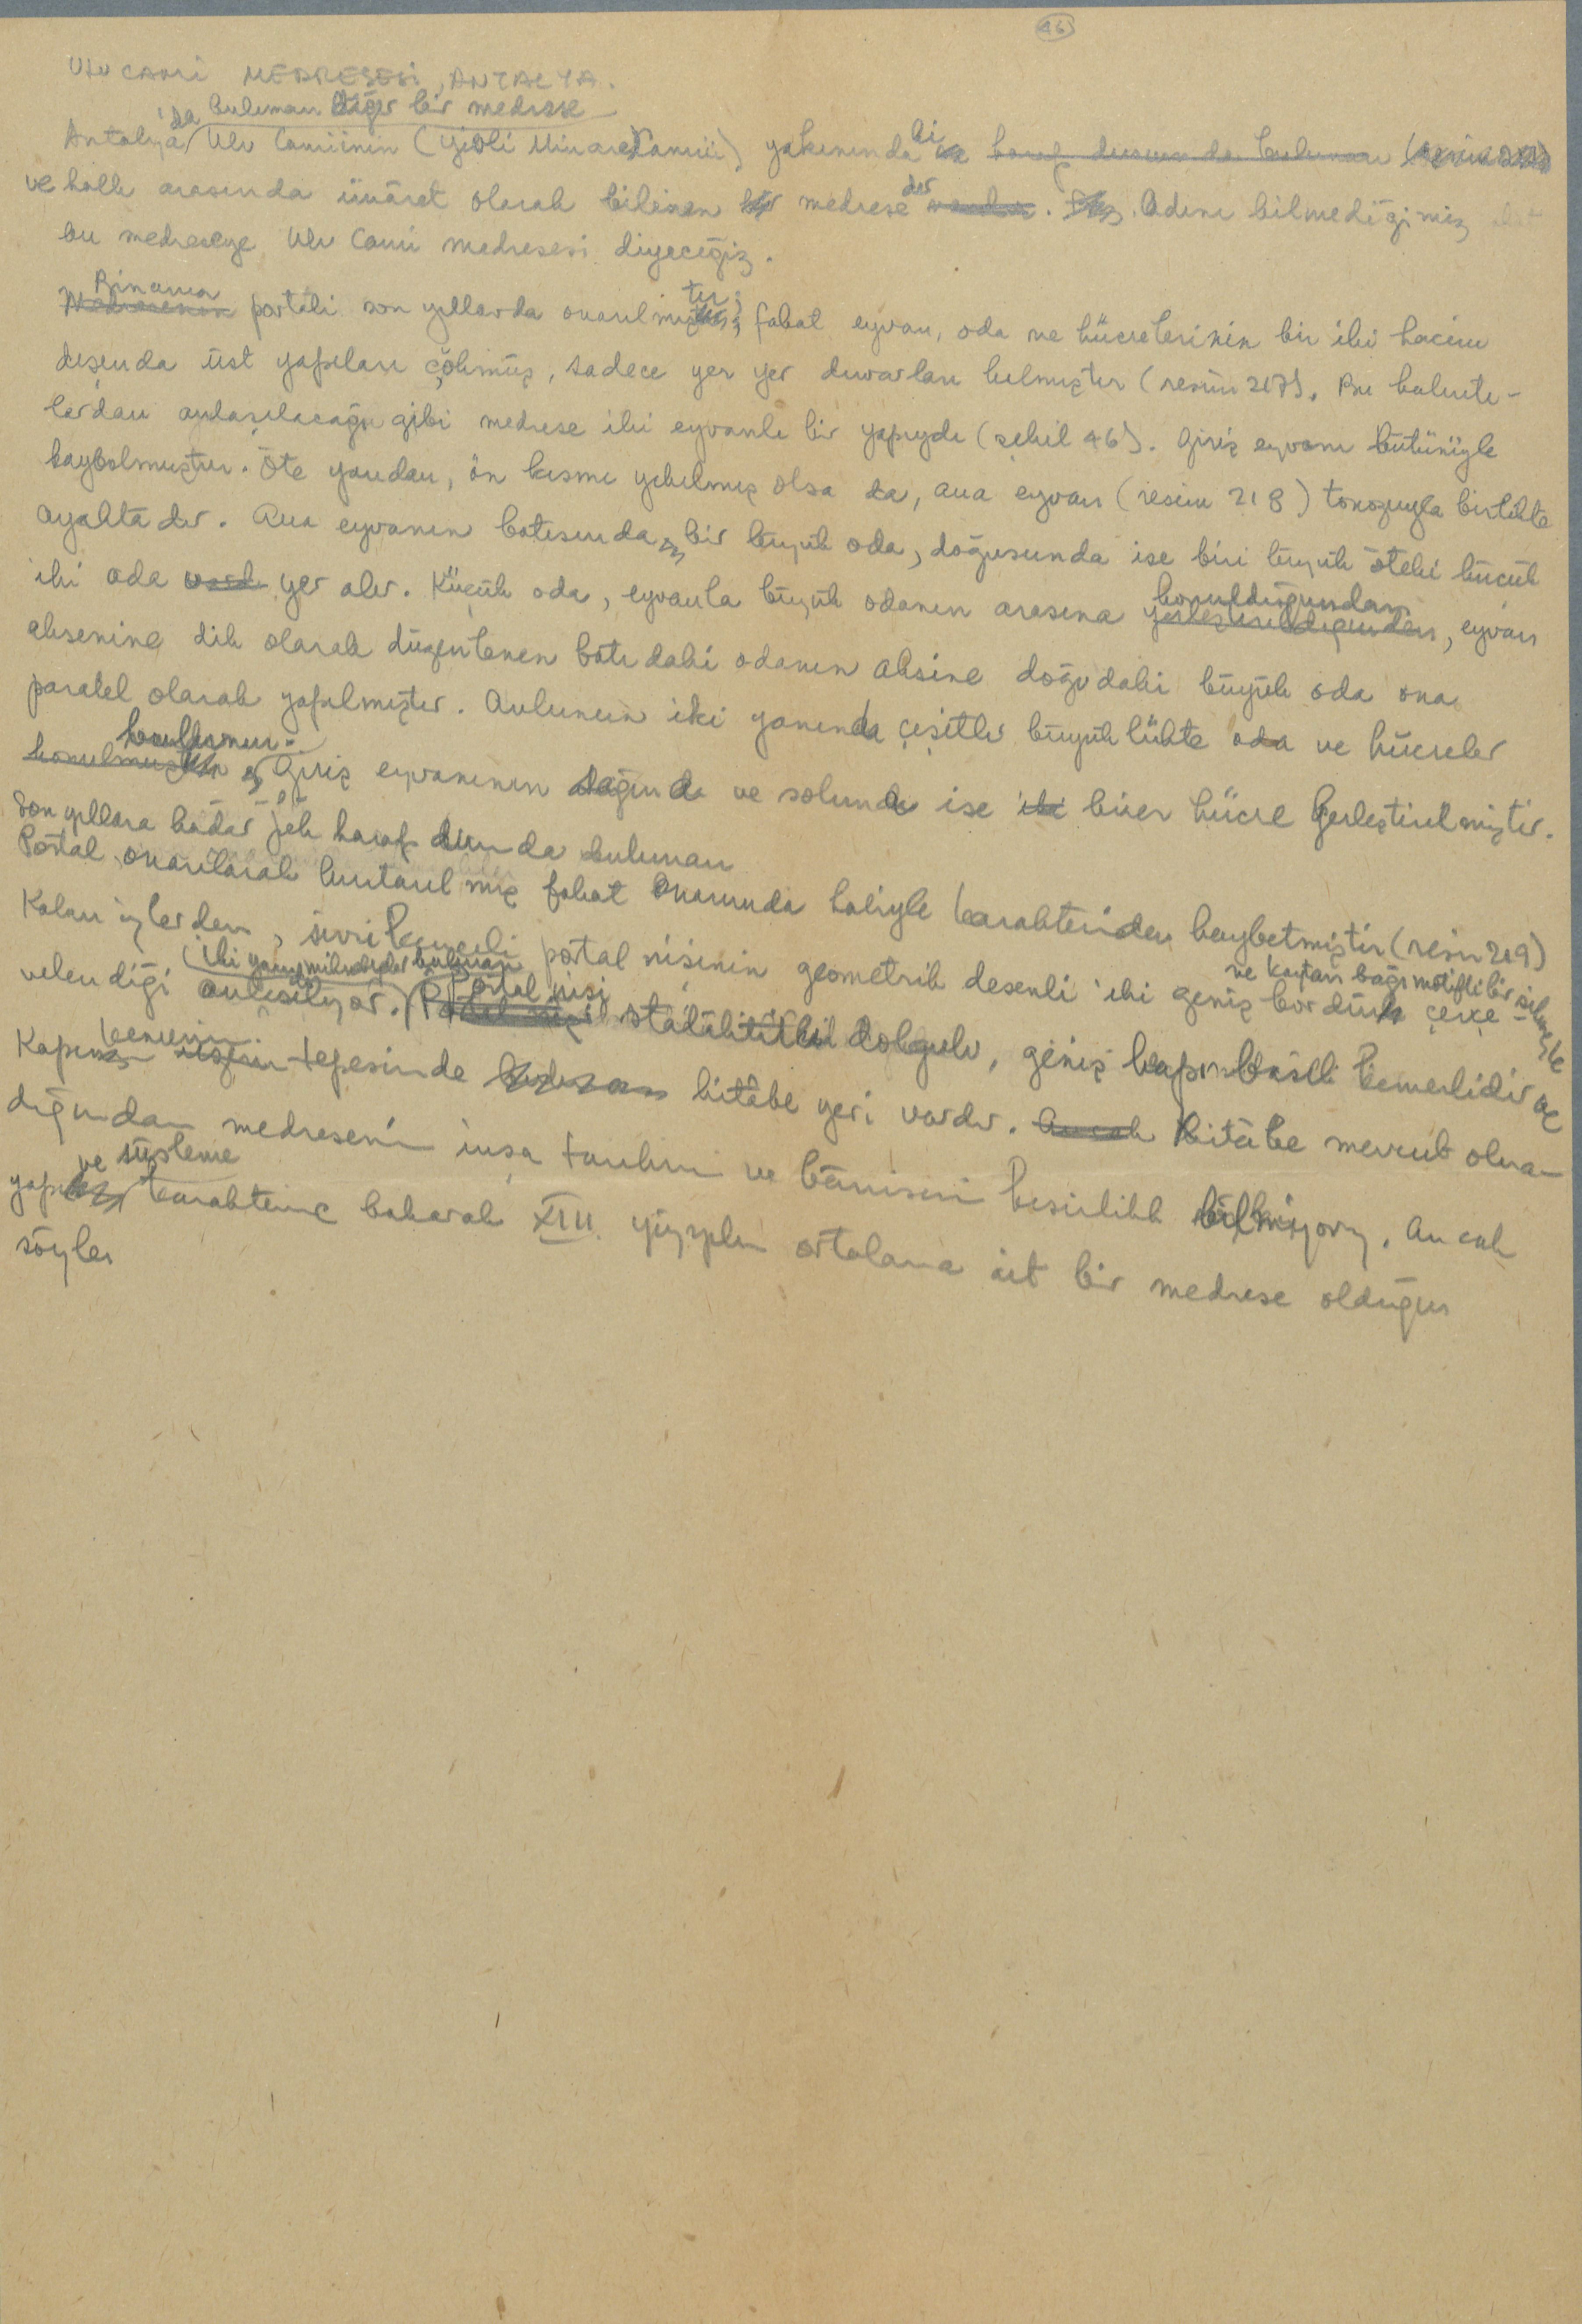 46
ULU CAMİ MEDRESESİ, ANTALYA.
'da bulunan diğer bir medrese
Antalya Ulu Camiinin (Yivli Minare Camii) yakınındaki harap durumda bulunan
ve halk arasında imâret olarak bilinen bir medresedir. Adını bilmediğimiz
bu medreseye Ulu Cami medresesi diyeceğiz.
Binanın
Medresenin portali son yıllarda onarılmıştır; fakat eyvan, oda ve hücrelerinin bir iki hacim
dışında üst yapıları çökmüş, sadece yer yer duvarları kalmıştır (resim 217). Bu kalıntı-
lardan anlaşılacağı gibi medrese iki eyvanlı bir yapıydı (şekil 46). Giriş eyvanı bütünüyle
kaybolmuştur. Öte yandan, ön kısmı yıkılmış olsa da, ana eyvan (resim 218) tonozuyla birlikte
ayaktadır. Ana eyvanın batısında bir büyük oda, doğusunda ise biri büyük öteki küçük
iki oda vardı yer alır. Küçük oda, eyvanla büyük odanın arasına yerleştirildiğinden, eyvan
konulduğundan
eksenine dik olarak düzenlenen batıdaki odanın aksine doğudaki büyük oda ona
paralel olarak yapılmıştır. Avlunun iki yanında çeşitli büyüklükte oda ve hücreler
konulmuştur Giriş eyvanının sağında ve solunda ise iki birer hücre yerleştirilmiştir.
Son yıllara kadar pek harap durumda bulunan
Portal onarılarak kurtarılmış fakat onarımda haliyle karakterinden kaybetmiştir (resim 219)
Kalan izlerden, sivri kemerli portal nişinin geometrik desenli iki geniş bordürle çerçe-
ve kaytan bağı motifli bir silmeyle
velendiği anlaşılıyor. Portal nişi stalâktit dolgulu, geniş kapı basık kemerlidir ve
iki yanında mihrabiyeler bulunan
Portal nişi
kemerinin
Kapının tepesinde bulunan kitâbe yeri vardır. Ancak Kitâbe mevcut olma-
dığından medresenin inşa tarihini ve bânisini kesinlikle bilmiyoruz. Ancak
ve süsleme
yapı karakterine bakarak XIII. yüzyılın ortalarına ait bir medrese olduğun
söyler